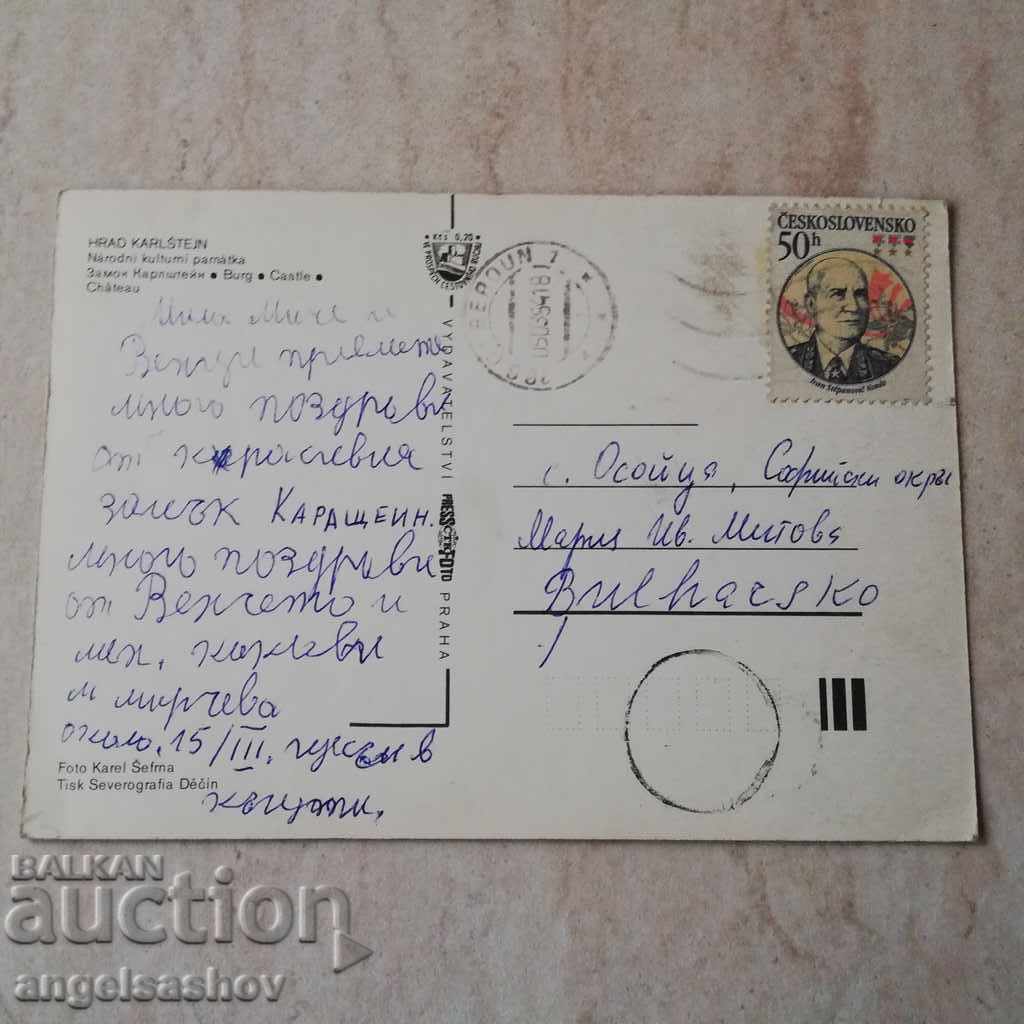 HRAD KARLŠTEJN
Národní kulturní památka
Замок Карлштейн • Burg • Castle •
Château
Мили Миче и
Венци приемете
много поздрави
от красивия
замък Каращеин.
много поздрави
от Венчето и
мен.
м мирчева
около 15/III. в
Foto Karel Šefrna
Tisk Severografia Děčín
Kčs 0,20
VE PROSPĚCH CESTOVNÍHO RUCHU
VYDAVATELSTVÍ PRESSFOTO PRAHA
ČTK
BEROUN 1
ČESKOSLOVENSKO
50h
Ivan Stěpanovič Koněv
с. Осойца, Софийски окръг
Мария Ив. Митова
Bulharsko
BALKAN
auction
angelsashov